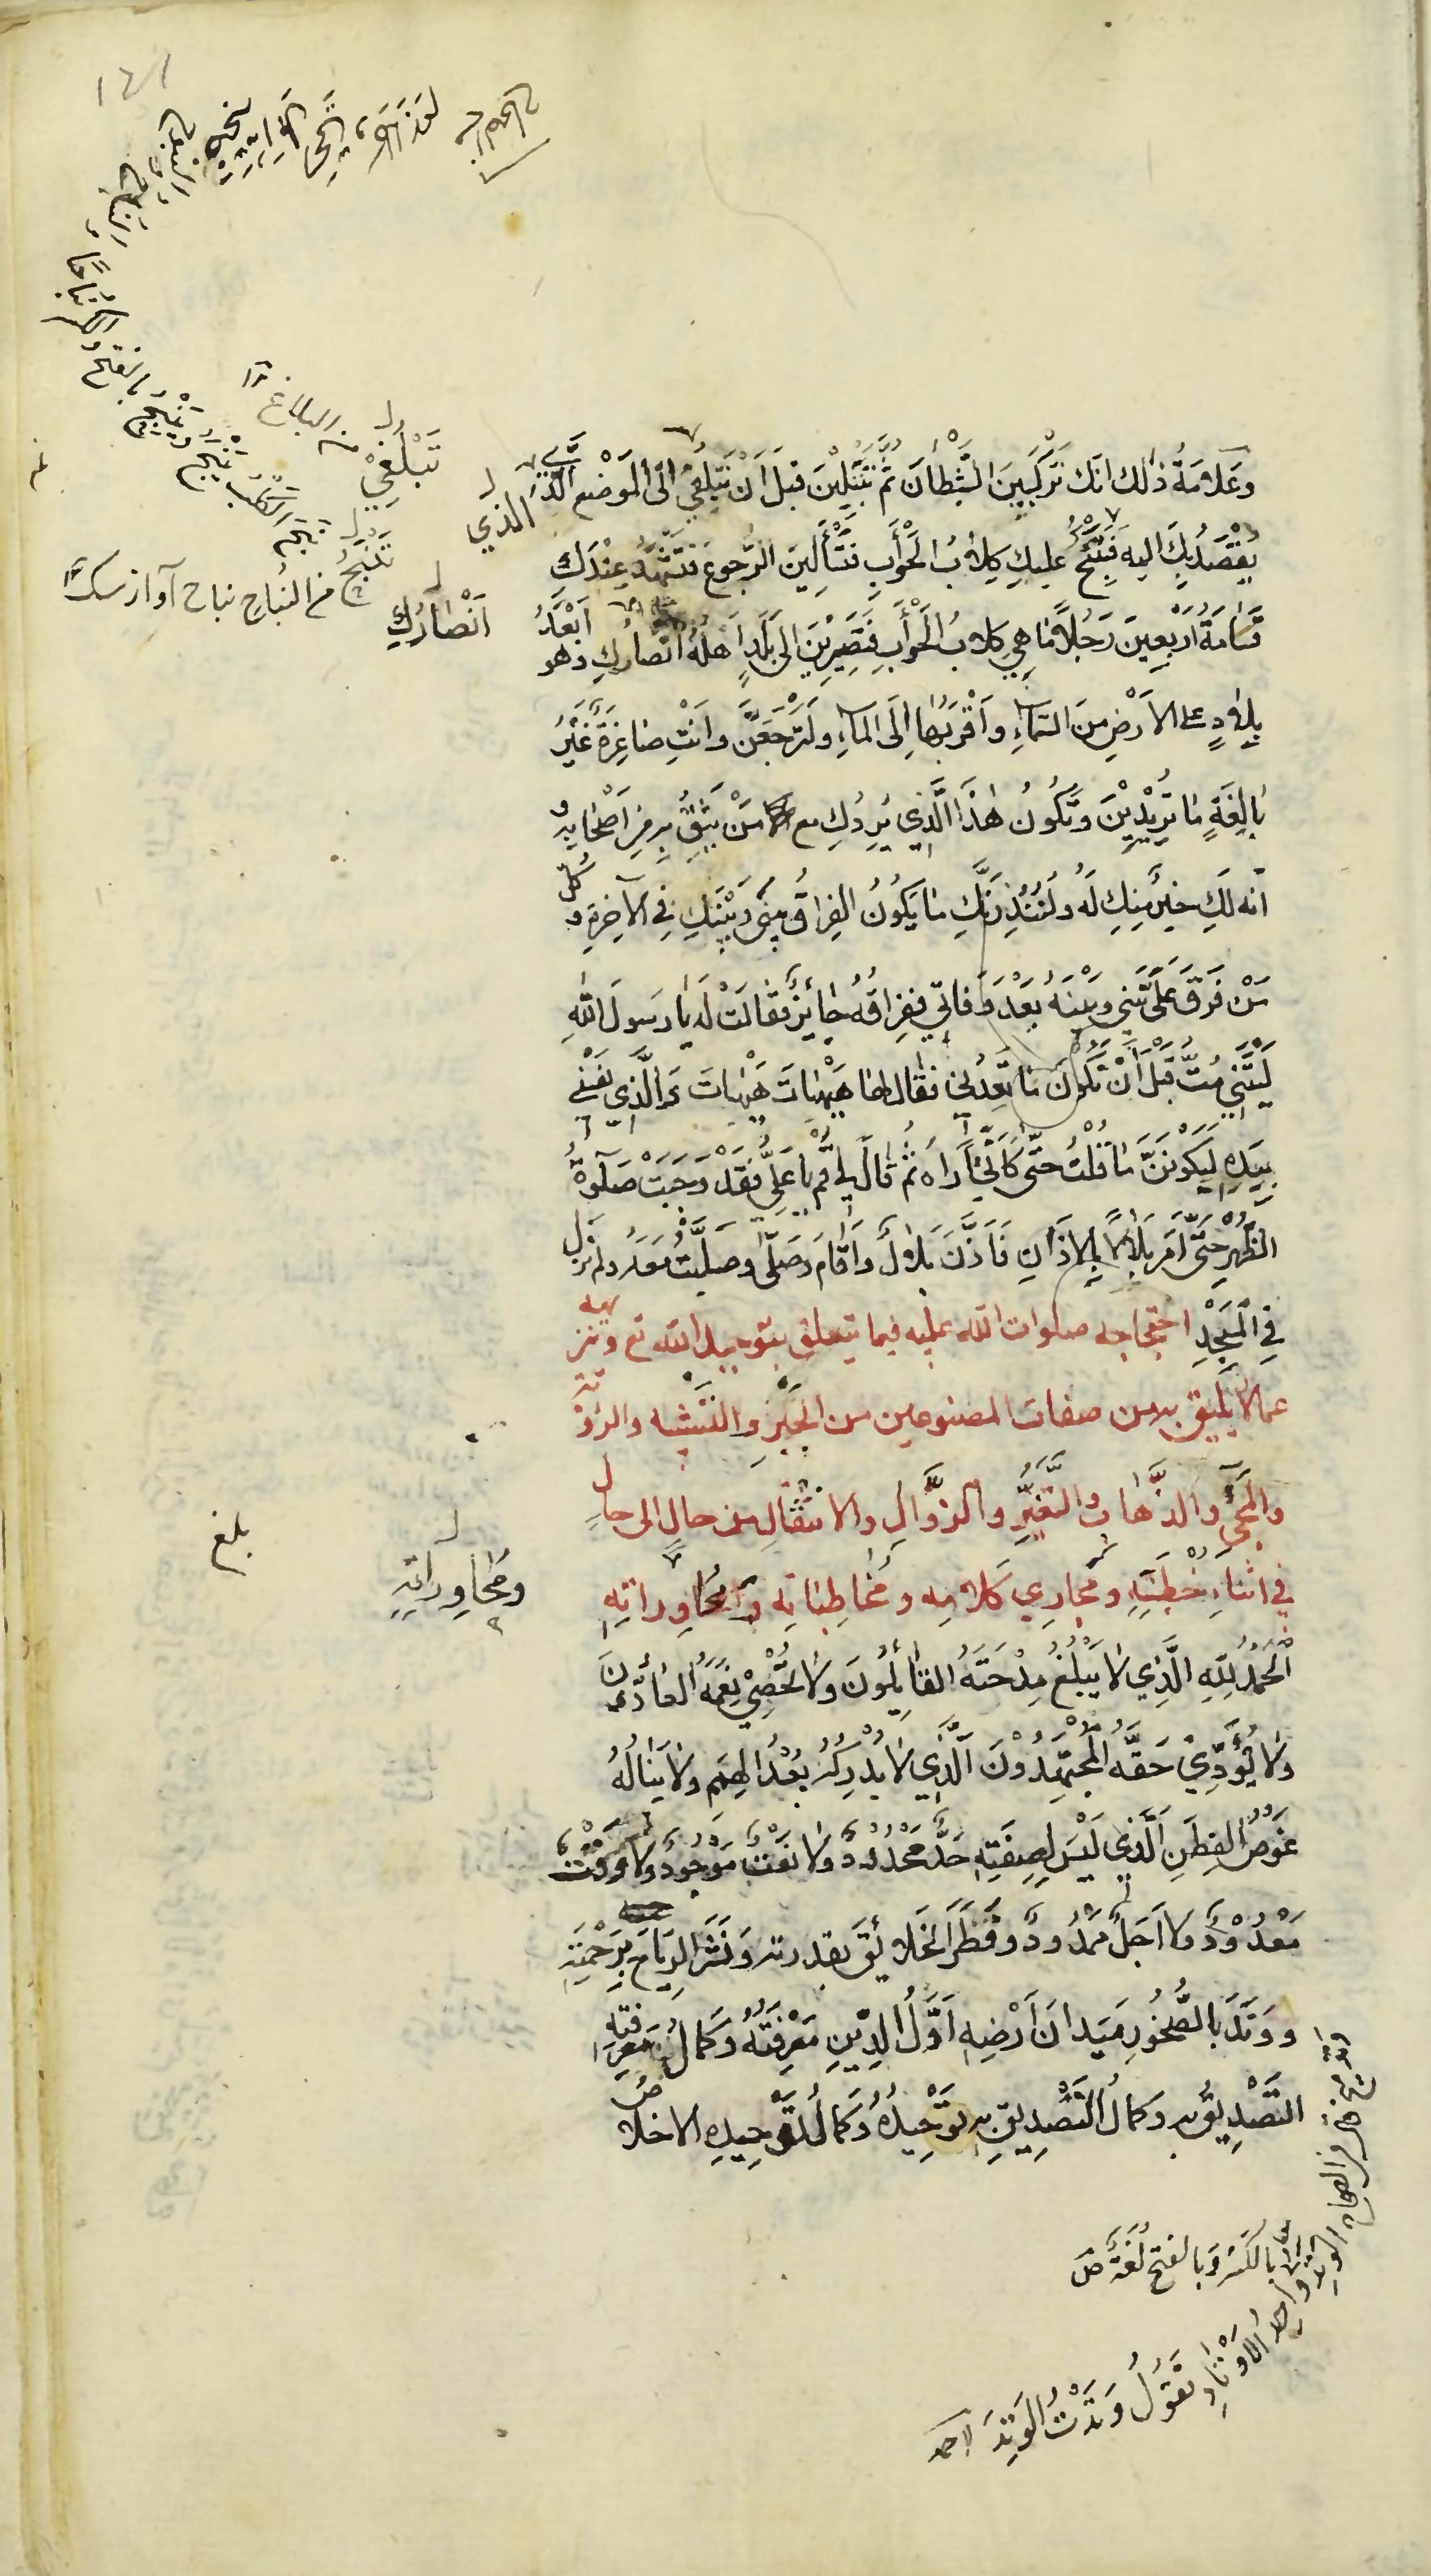 وعَلامَةُ ذٰلك انّك تَرْكَبِينَ الشَّيْطانَ ثُمَّ تُبْتَلِينَ قَبْلَ اَنْ تَبْلُغِي الَى المَوْضِعِ الَّذي
يُقْصَدُ بِكِ اليه فَتَنْبَحُ عليكِ كِلابُ الحَوْأَبِ فَتَسْأَلينَ الرُّجوعَ فَتَشْهَدُ عِنْدَكِ
قَسَامَةُ اَرْبَعِينَ رَجُلاً مَا هِيَ كِلابُ الحَوْأَبِ فَتَصِيرِيْنَ الى بَلَدٍ اَهْلُهُ اَنْصَارُكِ وهو اَبْعَدُ
بِلادٍ على الاَرْضِ مِنَ السَّمَاءِ وَاَقْرَبُهَا اِلَى المَاءِ ولَتَرْجِعِنَّ وانْتِ صَاغِرَةٌ غَيْرُ
بَالِغَةٍ مَا تُرِيْدِيْنَ وتَكُونُ هٰذَا الَّذِي يَرُدُّكِ مع مَنْ يَثِقُ بِهِ مِنْ اَصْحَابِهِ و
انّه لَكِ خَيْرٌ مِنْكِ لَهُ ولَيُنْذِرَنَّكِ مَا يَكُونُ الفِرَاقُ بَيْنِي وَبَيْنَكِ فِي الآخِرَةِ و كلّ
مَنْ فَرَّقَ عَلِيٌّ بَيْنِي وبَيْنَهُ بَعْدَ وَفاتي فَفِرَاقُهُ جَائِزٌ فَقَالَتْ لَه يَا رَسُولَ اللهِ
لَيْتَنِي مُتُّ قَبْلَ اَنْ يَكُونَ مَا تَعِدُنِي فَقَالَ لها هَيْهَاتَ هَيْهَاتَ وَالَّذِي نَفْسِي
بِيَدِهِ لَيَكُوْنَنَّ مَا قُلْتُ حَتَّى كَاَنِّي اَرَاهُ ثُمّ قَالَ لِي قُمْ يَا عَلِيُّ فَقَدْ وَجَبَتْ صَلٰوةُ
الظُّهْرِ حَتَّى اٰمُرَ بِلَالًا بِالاَذَانِ فَاَذَّنَ بِلَالٌ وَاَقَامَ وَصَلَّى وصَلَّيْتُ مَعَهُ ولم نزل
فِي المَسْجِدِ احتجاجه صلوات الله عليه فيما يتعلق بتوحيد الله تع وتنزيهه
عمالا يليق به من صفات المصنوعين من الجَبْرِ والتَّشبيه والرؤية
والمجيءِ والذَّهابِ والتَّغَيُّرِ والزَّوَالِ والانتقالِ من حالٍ الى حالٍ
في اثنَاءِ خُطَبِه ومجارِي كلامِه ومُخاطباتِه ومُحاوراتِهِ
اَلْحَمْدُ لِلّٰهِ الَّذِي لَا يَبْلُغُ مِدْحَتَهُ القَائِلُونَ ولا يُحْصِي نِعَمَهُ العَادُّونَ
ولا يُؤَدِّي حَقَّهُ المُجْتَهِدُوْنَ الَّذِي لا يُدْرِكُهُ بُعْدُ الهِمَمِ ولا يَنَالُهُ
غَوْصُ الفِطَنِ الَّذِي لَيْسَ لِصِفَتِهِ حَدٌّ مَحْدُودٌ ولا نَعْتٌ مَوْجُودٌ ولا وَقْتٌ
مَعْدُوْدٌ ولا اَجَلٌ مَمْدُودٌ وفَطَرَ الخَلائِقَ بقدرته وَنَشَرَ الرِّيَاحَ بِرَحْمَتِهِ
ووَتَّدَ بالصُّخُورِ مَيَدانَ اَرْضِهِ اَوَّلُ الدِّيْنِ مَعْرِفَتُهُ وَكَمالُ مَعْرِفَتِهِ
التَّصْدِيقُ به وكمالُ التَّصْدِيقِ به تَوْحِيدُهُ وَكَمالُ تَوْحِيدِهِ الاخلاص
الذي
تَبْلُغِيْ
من البلاغ
تَنْبَحُ
من النُباحِ نباح آواز سك
اَنْصَارُكِ
وَيَنْبِحُ بالفتح والكسر نُباحًا
بلغ
ومُحاوِراتِهِ
بالكسر وبالفتح لُغَةٌ ص
الوَتِدُ واحِدُ الأوْتَادِ تَقُولُ وَتَدْتُ الوَتِدَ